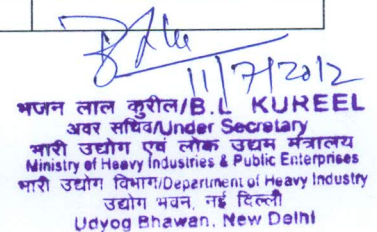 11/7/2012
भजन लाल कुरील/B.L KUREEL
अवर सचिव/Under Secretary
भारी उद्योग एवं लोक उद्यम मंत्रालय
Ministry of Heavy Industries & Public Enterprises
भारी उद्योग विभाग/Department of Heavy Industry
उद्योग भवन, नई दिल्ली
Udyog Bhawan, New Delhi